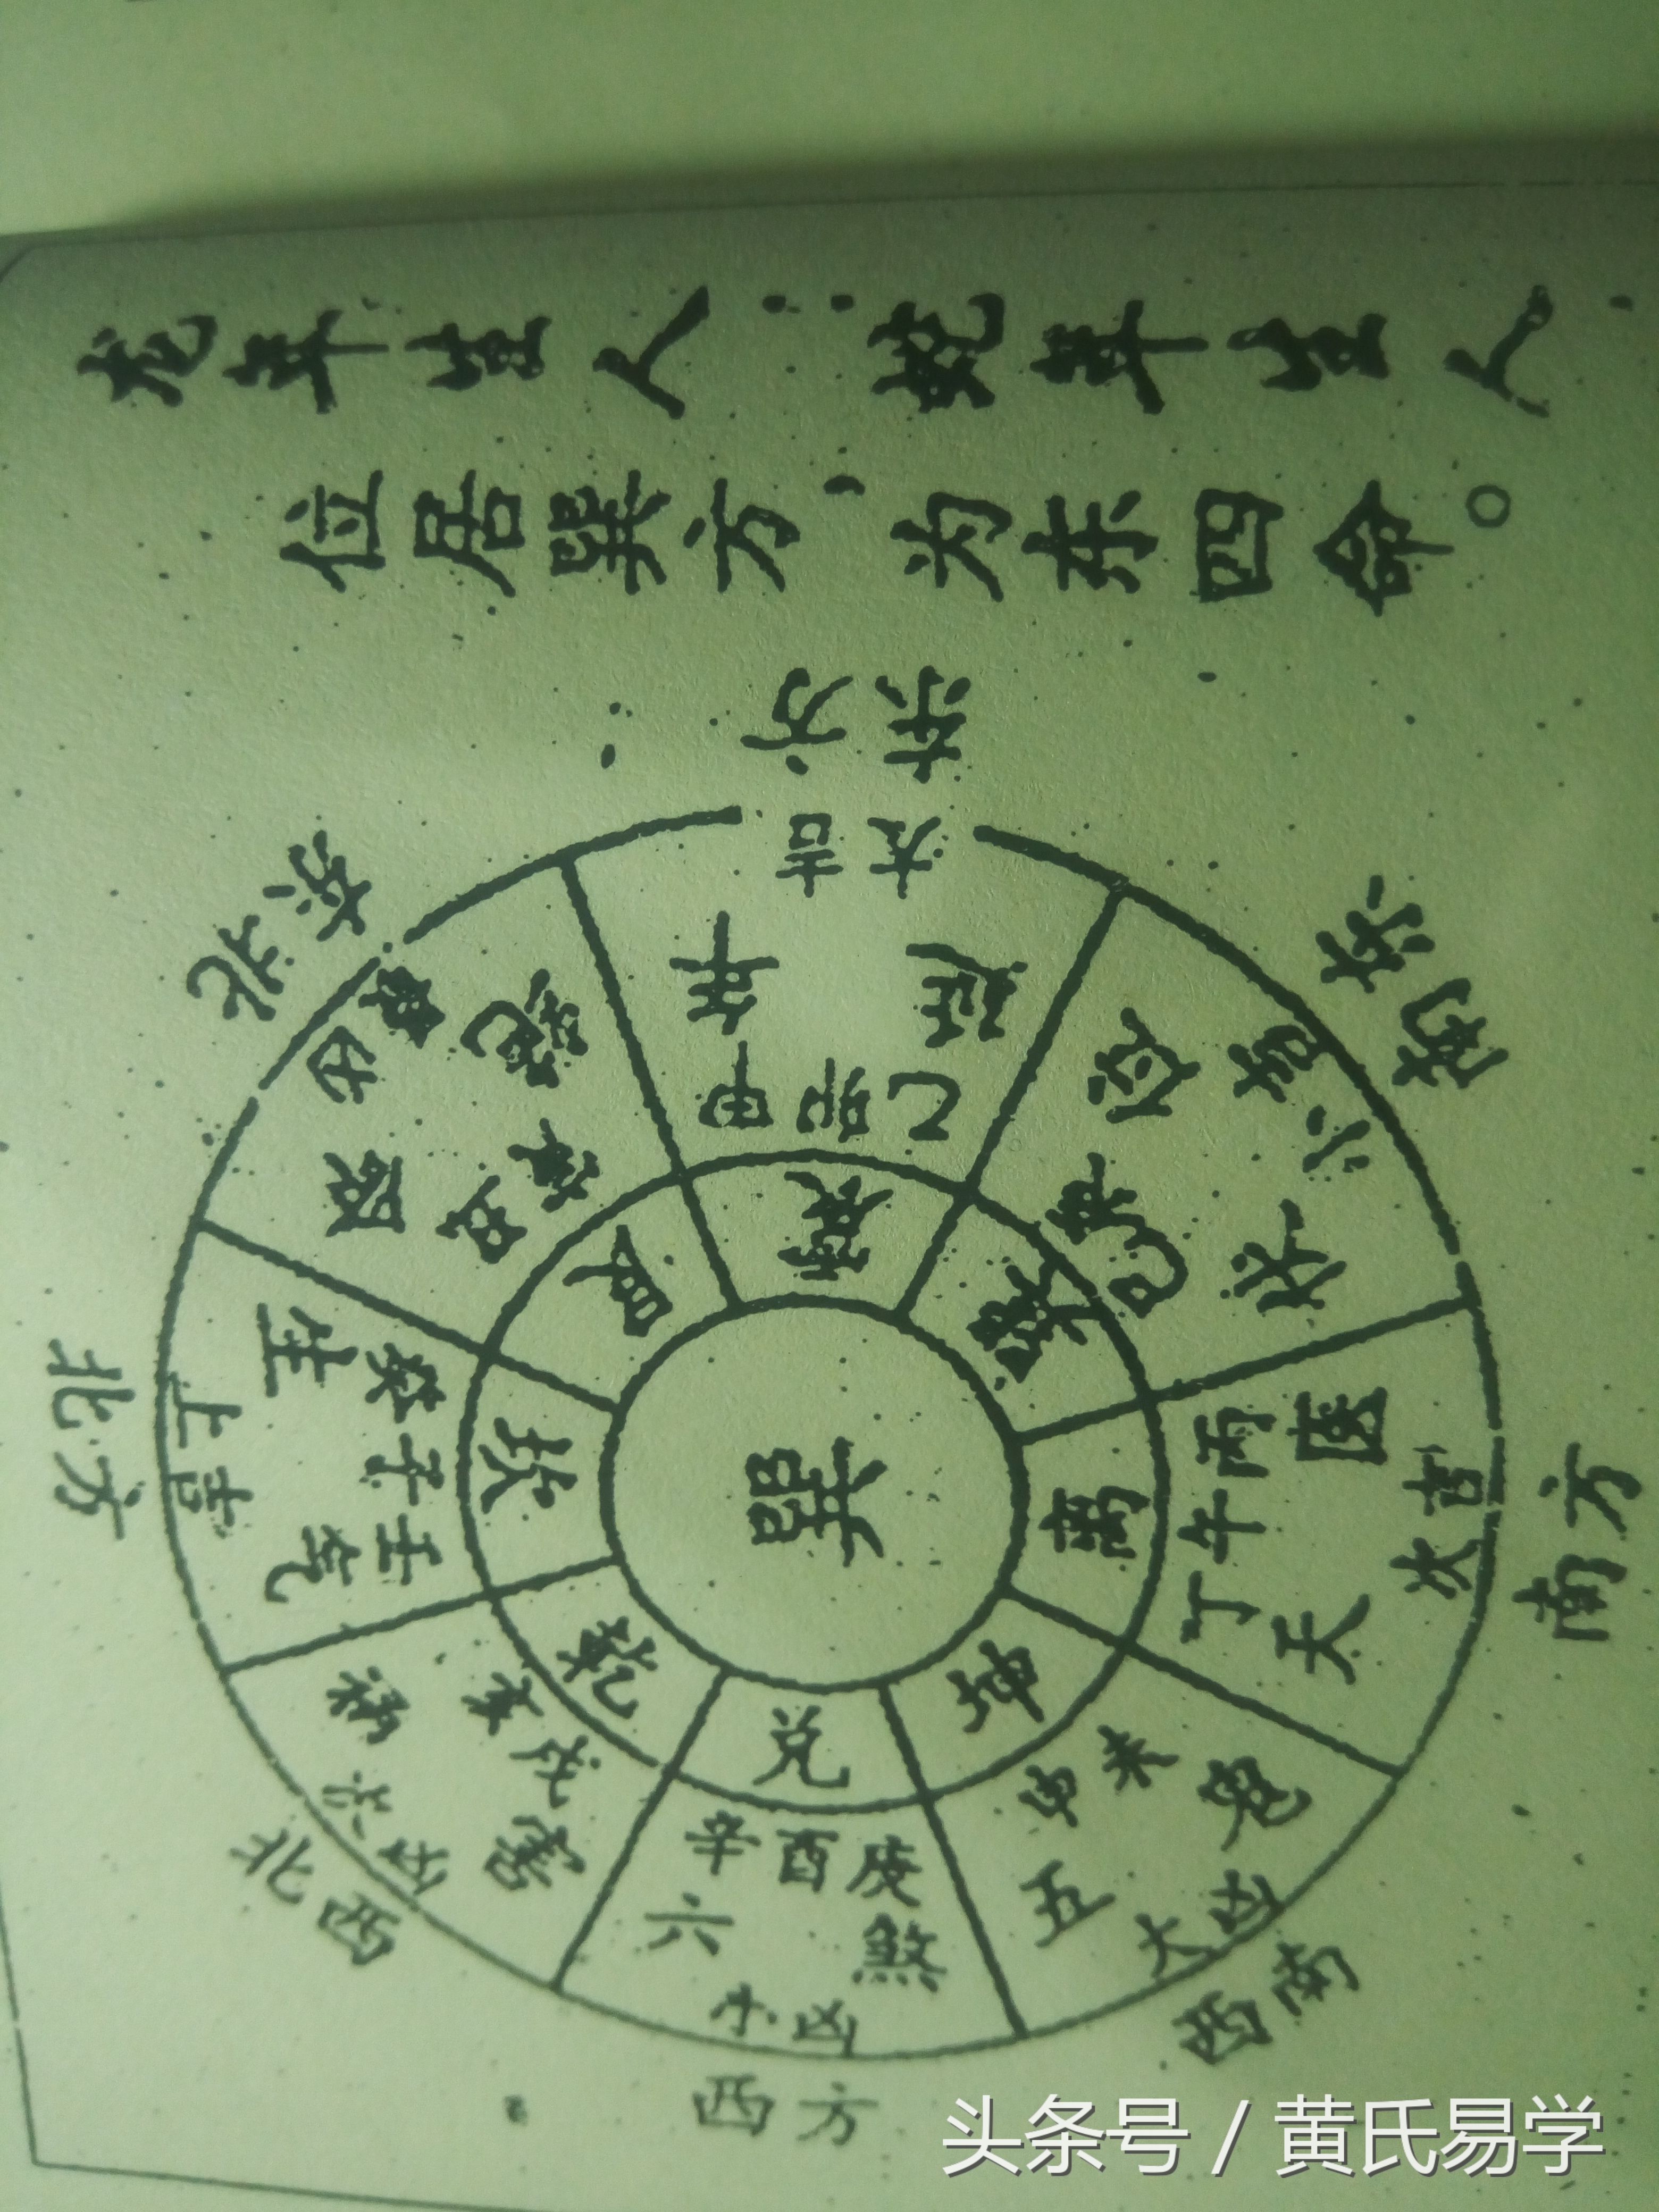 龙年生人:蛇年生人
位居巽方,为东四命。
东方
大吉
延年
甲卯乙
震
东南
小吉
伏位
辰巳
巽
南方
次吉
天医
丙午丁
离
西南
大凶
五鬼
未申
坤
西方
小凶
六煞
庚酉辛
兑
西北
次凶
祸害
戌亥
乾
北方
上吉
生气
壬子癸
坎
东北
凶
绝
丑
艮
巽
头条号 / 黄氏易学